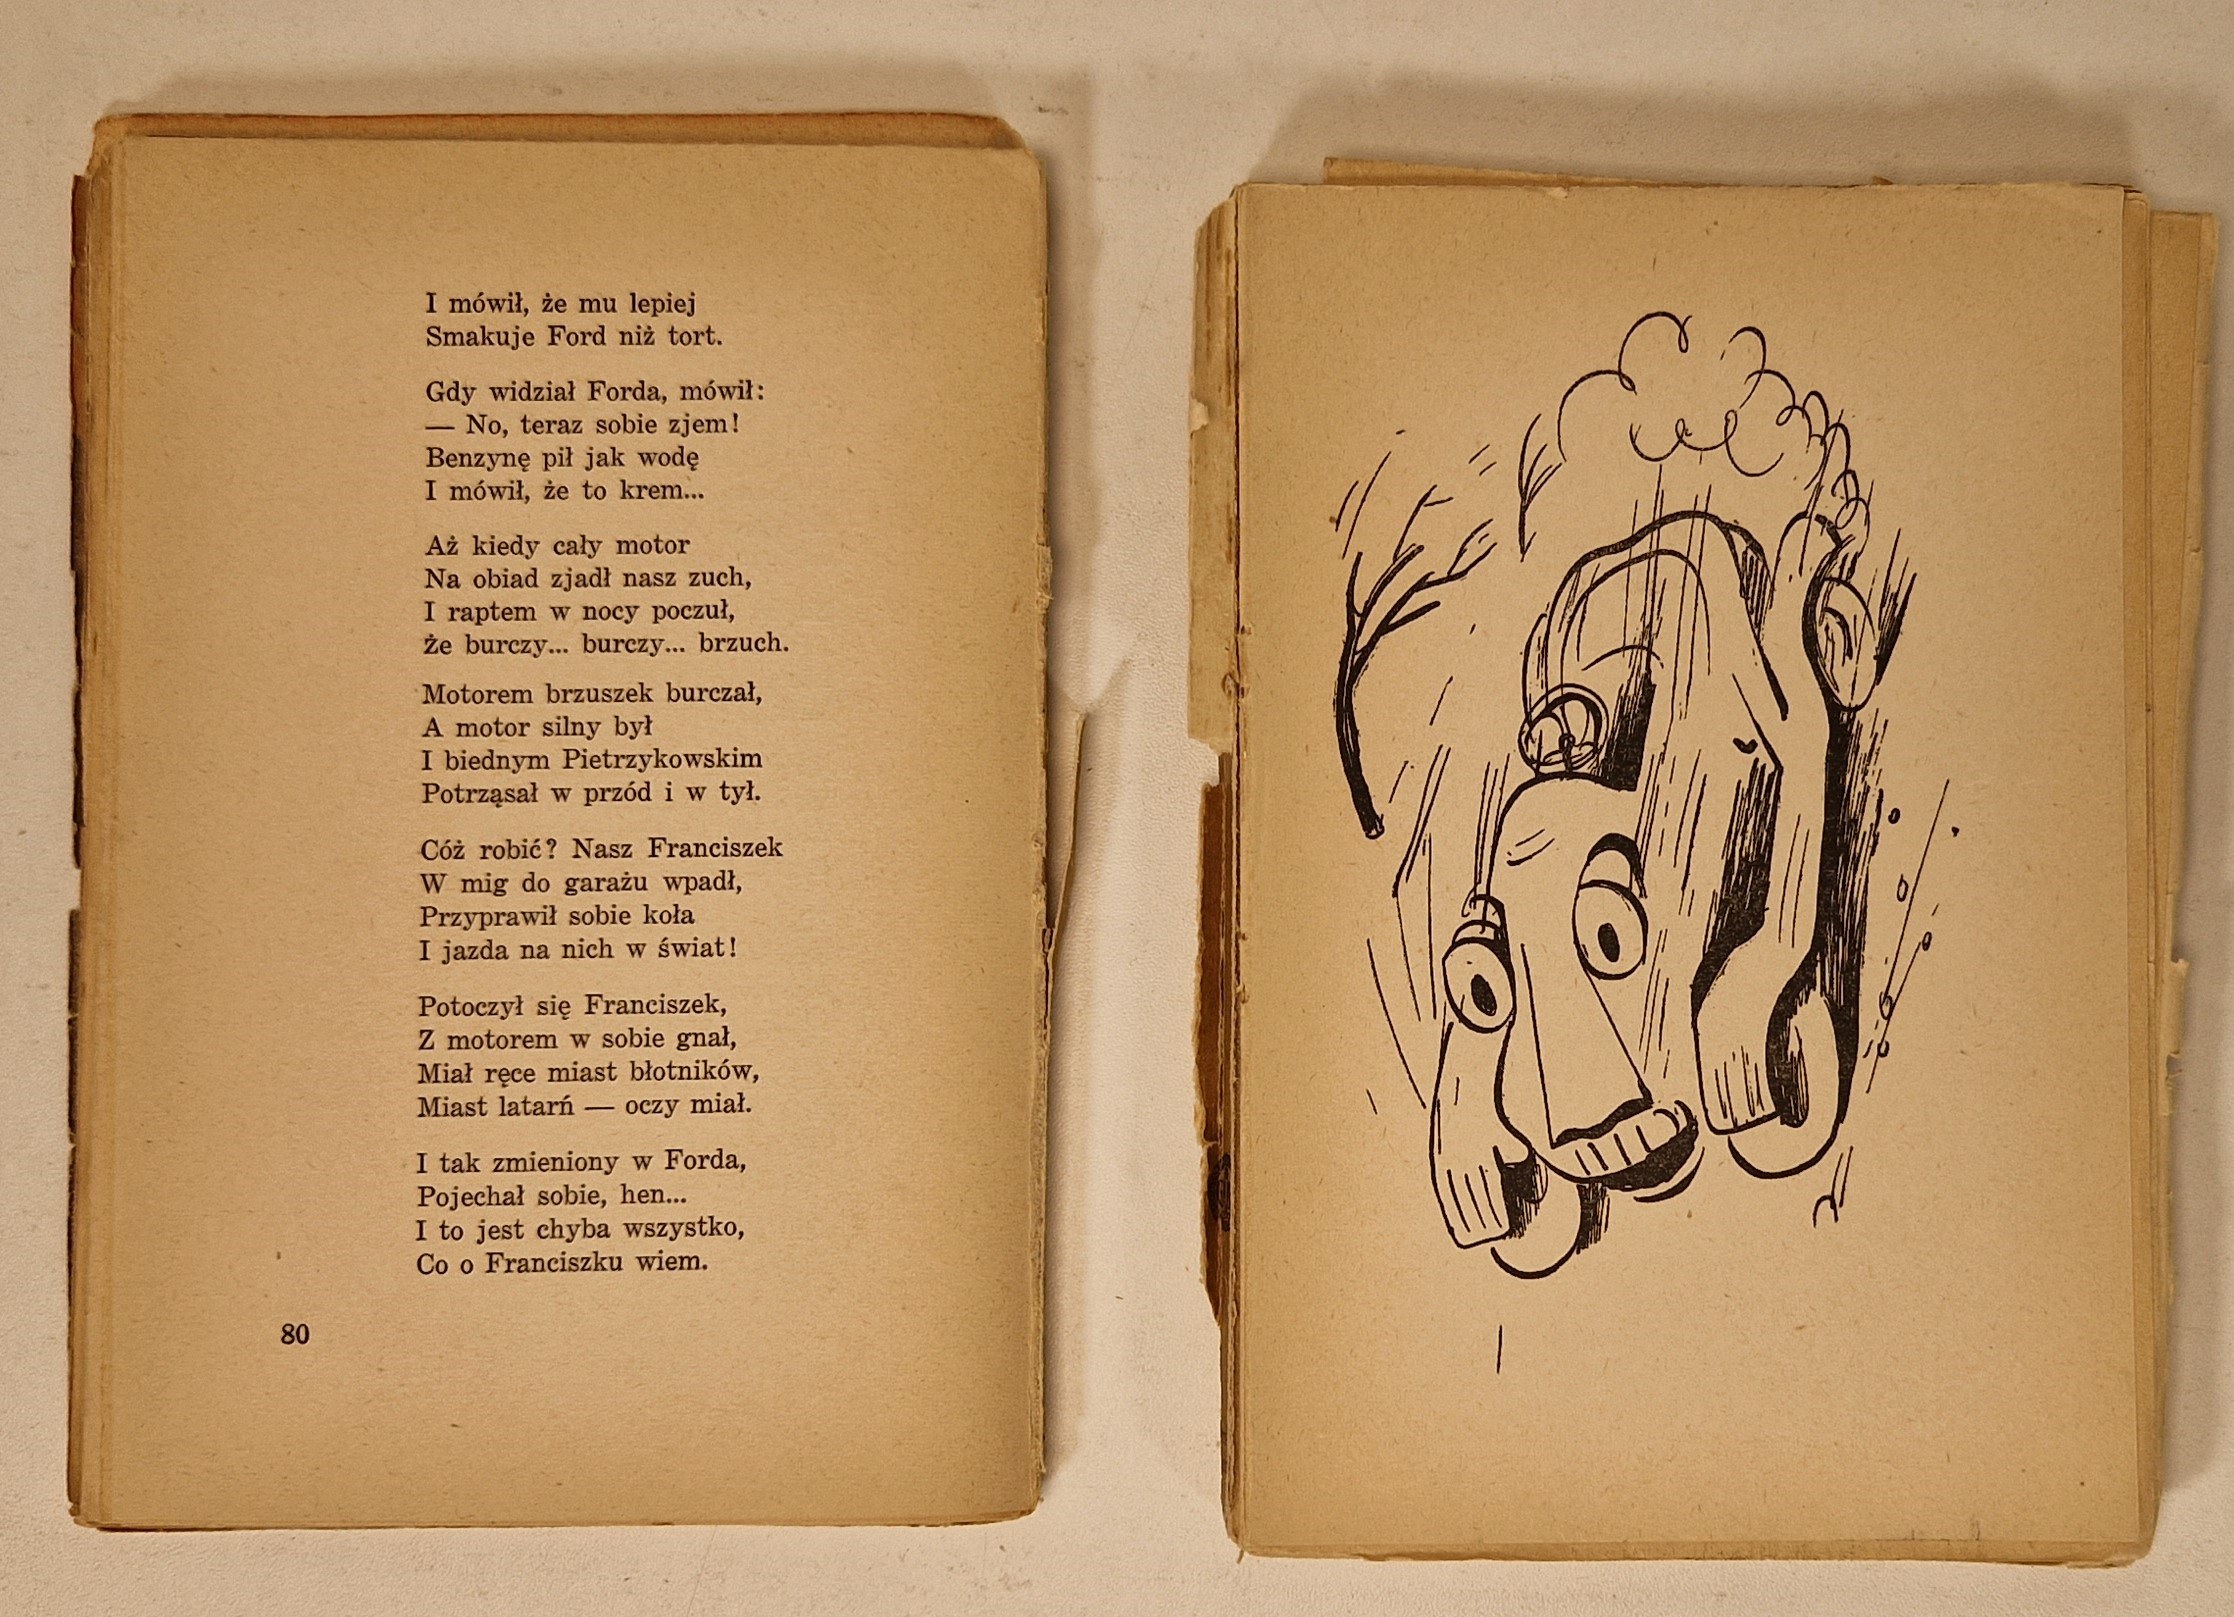 I mówił, że mu lepiej
Smakuje Ford niż tort.
Gdy widział Forda, mówił:
— No, teraz sobie zjem!
Benzynę pił jak wodę
I mówił, że to krem...
Aż kiedy cały motor
Na obiad zjadł nasz zuch,
I raptem w nocy poczuł,
Że burczy... burczy... brzuch.
Motorem brzuszek burczał,
A motor silny był
I biednym Pietrzykowskim
Potrząsał w przód i w tył.
Cóż robić? Nasz Franciszek
W mig do garażu wpadł,
Przyprawił sobie koła
I jazda na nich w świat!
Potoczył się Franciszek,
Z motorem w sobie gnał,
Miał ręce miast błotników,
Miast latarń — oczy miał.
I tak zmieniony w Forda,
Pojechał sobie, hen...
I to jest chyba wszystko,
Co o Franciszku wiem.
80